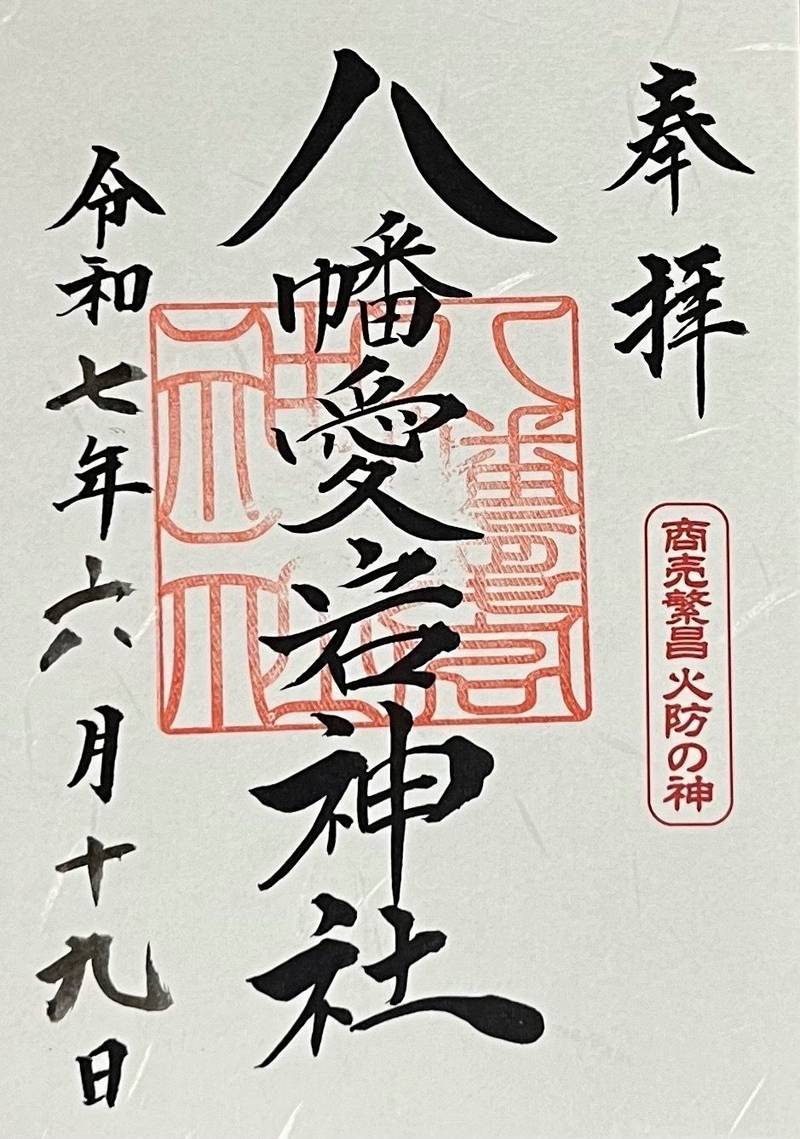 奉拝
商売繁昌 火防の神
八幡愛宕神社
令和七年六月十九日